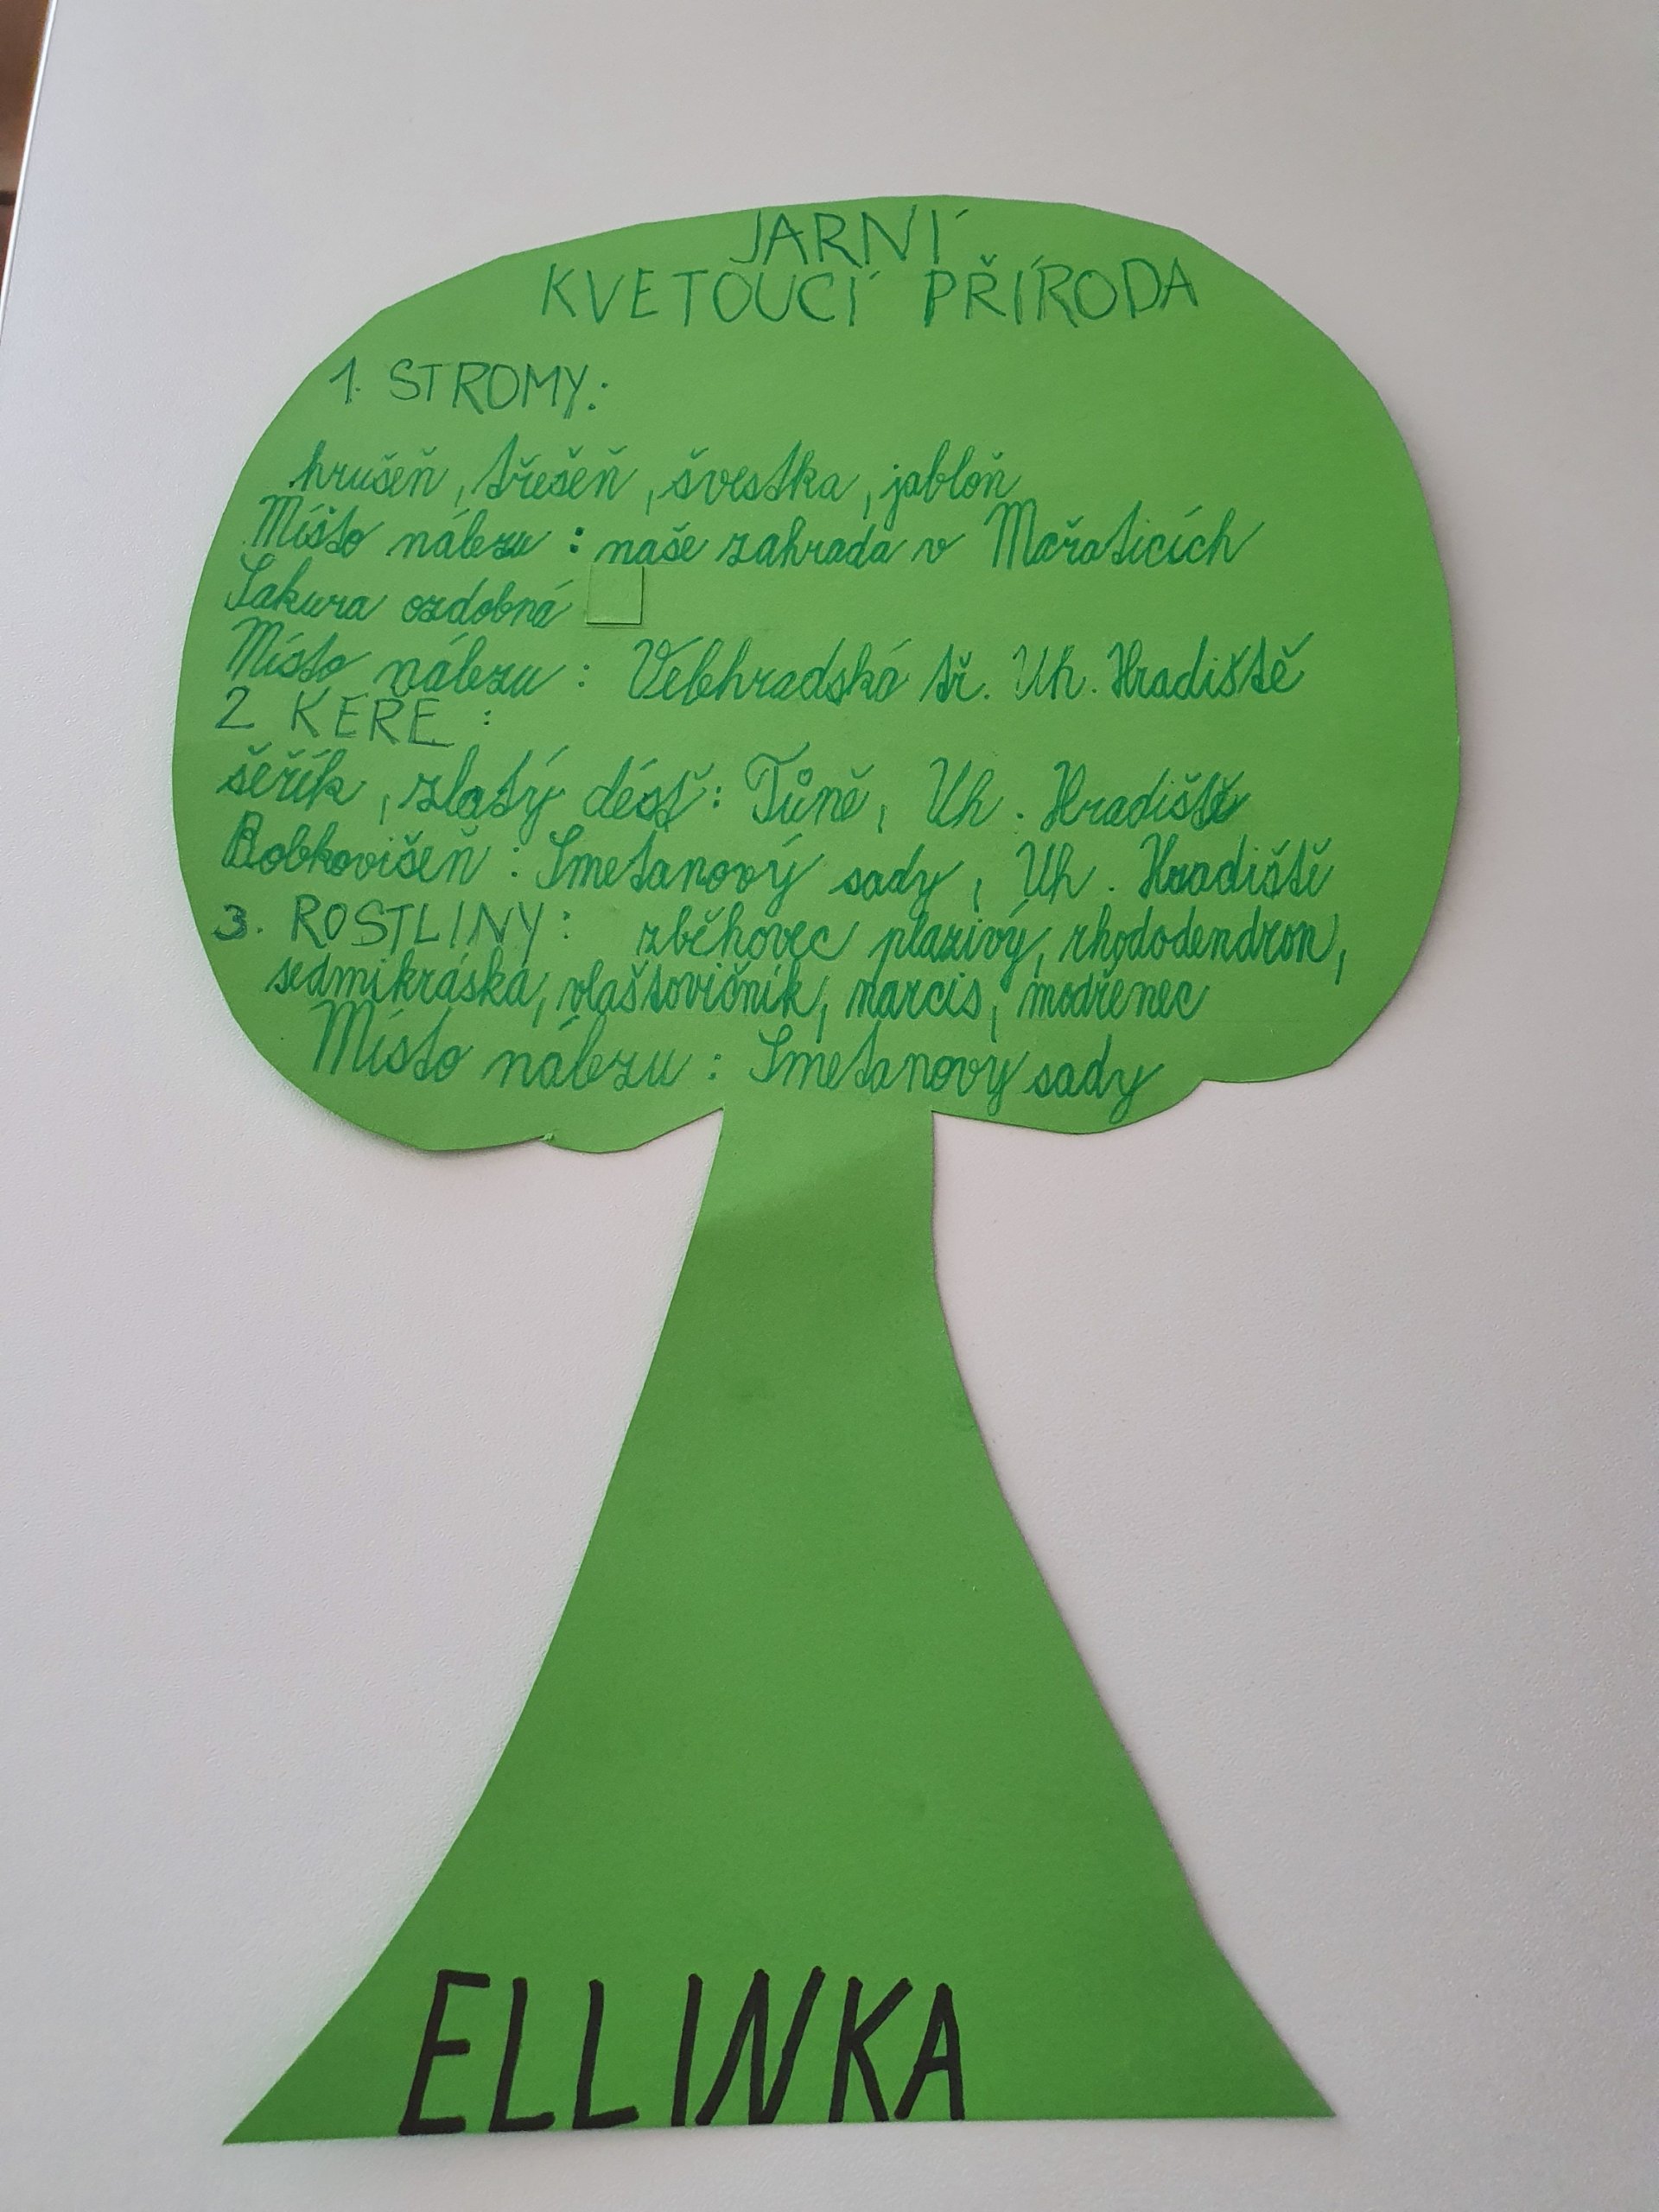 JARNÍ
KVETOUCÍ PŘÍRODA
1. STROMY:
hrušeň, třešeň, švestka, jabloň
Místo nálezu : naše zahrada v Mařaticích
Sakura ozdobná
Místo nálezu : Velehradská tř. Uh. Hradiště
2 KEŘE :
šeřík, zlatý déšť: Tůně, Uh. Hradiště
Bobkovišeň : Smetanový sady, Uh. Hradiště
3. ROSTLINY: zběhovec plazivý, rhododendron,
sedmikráska, vlaštovičník, narcis, modřenec
Místo nálezu : Smetanovy sady
ELLINKA